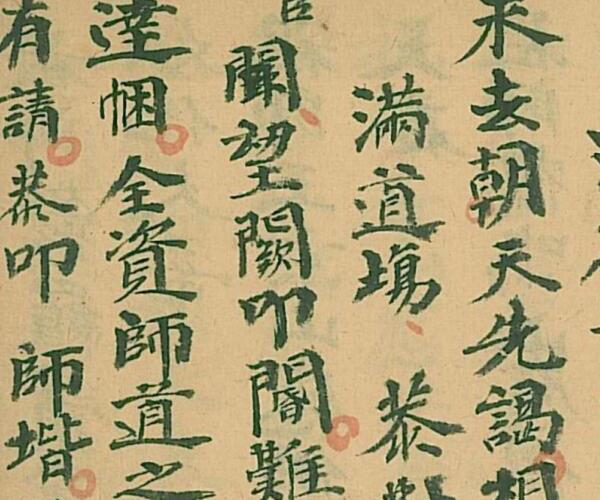 來去朝天先謁相
滿道塲恭
聞望闕叩閽難
達悃全資師道之
有請恭叩師堦